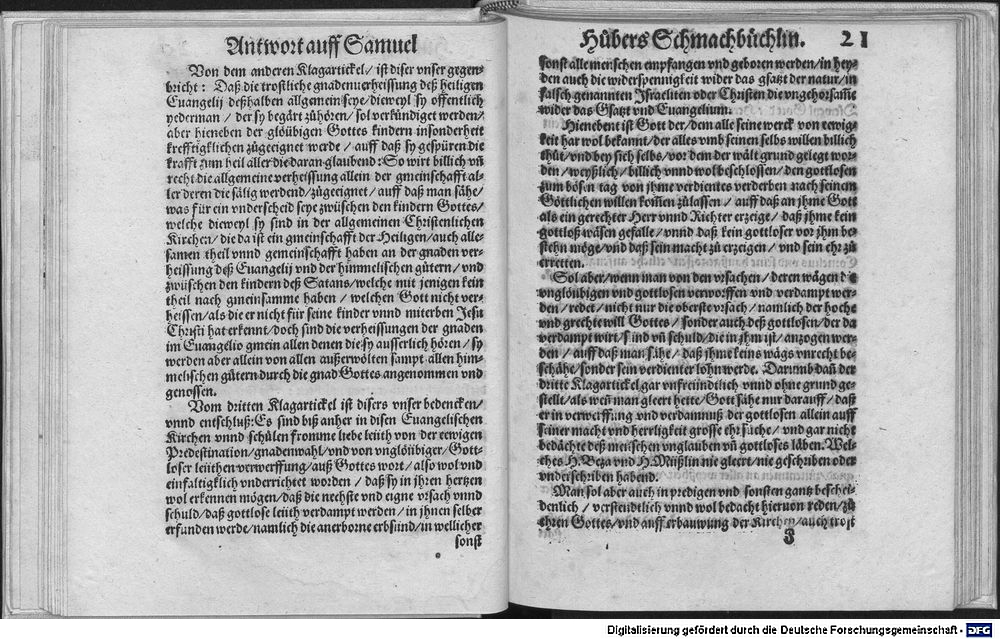 Antwort auff Samuel
Von dem anderen Klagartickel/ist diser vnser gegen-
bricht: Daß die trostliche gnadenuerheissung deß heiligen
Euangelij deßhalben allgemein seye/dieweyl sy offentlich
yederman/der sy begärt zůhören/sol verkündiget werden/
aber hieneben der glöübigen Gottes kindern insonderheit
krefftigklichen zůgeeignet werde/auff daß sy gespüren die
krafft zum heil aller die daran glaubend: So wirt billich vñ
recht die allgemeine verheissung allein der gmeinschafft al-
ler deren die sälig werdend/zůgeeignet/auff daß man sähe/
was für ein vnderscheid seye zwüschen den kindern Gottes/
welche dieweyl sy sind in der allgemeinen Christenlichen
Kirchen/die da ist ein gmeinschafft der Heiligen/auch alle-
samen theil vnnd gemeinschafft haben an der gnaden ver-
heissung deß Euangelij vnd der himmelischen gütern/vnd
zwüschen den kindern deß Satans/welche mit jenigen kein
theil nach gmeinsamme haben/welchen Gott nicht ver-
heissen/als die er nicht für seine kinder vnnd miterben Jesu
Christi hat erkennt/doch sind die verheissungen der gnaden
im Euangelio gmein allen denen die sy ausserlich hören/sy
werden aber allein von allen außerwölten sampt allen him-
melischen gütern durch die gnad Gottes angenommen vnd
genossen.
Vom dritten Klagartickel ist disers vnser bedencken/
vnnd entschluß: Es sind biß anher in disen Euangelischen
Kirchen vnnd schůlen fromme liebe leüth von der eewigen
Predestination/gnadenwahl/vnd von vnglöübiger/Gott-
loser leüthen verwerffung/auß Gottes wort/also wol vnd
einfaltigklich vnderrichtet worden/daß sy in jhren hertzen
wol erkennen mögen/daß die nechste vnd eigne vrsach vnnd
schuld/daß gottlose leüth verdampt werden/in jhnen selber
erfunden werde/namlich die anerborne erbsünd/in wellicher
sonst
Hůbers Schmachbüchlin. 21
sonst alle menschen empfangen vnd geboren werden/in hey-
den auch die widerspennigkeit wider das gsatzt der natur/in
falsch genannten Israeliten oder Christen die vngehorsame
wider das Gsatzt vnd Euangelium.
Hienebent ist Gott der/dem alle seine werck von eewig-
keit har wol bekannt/der alles vmb seinen selbs willen billich
thůt/vnd bey sich selbs/vor dem der wält grund gelegt wor-
den/weyßlich/billich vnnd wol beschlossen/den gottlosen
zum bösen tag von jhme verdientes verderben nach seinem
Göttlichen willen kom̃en zůlassen/auff daß an jhme Gott
als ein gerechter Herr vnnd Richter erzeige/daß jhme kein
gottloß wäsen gefalle/vnnd daß kein gottloser vor jhm be-
stehn möge/vnd daß sein macht zů erzeigen/vnd sein ehr zů
erretten.
Sol aber/wenn man von den vrsachen/deren wägen die
vnglöubigen vnd gottlosen verworffen vnd verdampt wer-
den/redet/nicht nur die oberste vrsach/namlich der hoche
vnd grechte will Gottes/sonder auch deß gottlosen/der da
verdampt wirt/sünd vñ schuld/die in jhm ist/anzogen wer-
den/auff daß man sähe/daß jhme keins wägs vnrecht be-
schähe/sonder sein verdienter lohn werde. Darumb dañ der
dritte Klagartickel gar vnfreündtlich vnnd ohne grund ge-
stellt/als weñ man gleert hette/Gott sähe nur darauff/daß
er in verwerffung vnd verdamnuß der gottlosen allein auff
seiner macht vnd herrligkeit grosse ehr sůche/vnd gar nicht
bedächte deß menschen vnglauben vñ gottloses läben. Wel-
ches H. Beza vnd H. Müßlin nie gleert/nie geschriben oder
vnderschriben habend.
Man sol aber auch in predigen vnd sonsten gantz beschei-
denlich/verstendtlich vnnd wol bedacht hieruon reden/zů
ehren Gottes/vnd auff erbauwung der Kirchen/auch trost
J
Digitalisierung gefördert durch die Deutsche Forschungsgemeinschaft - DFG